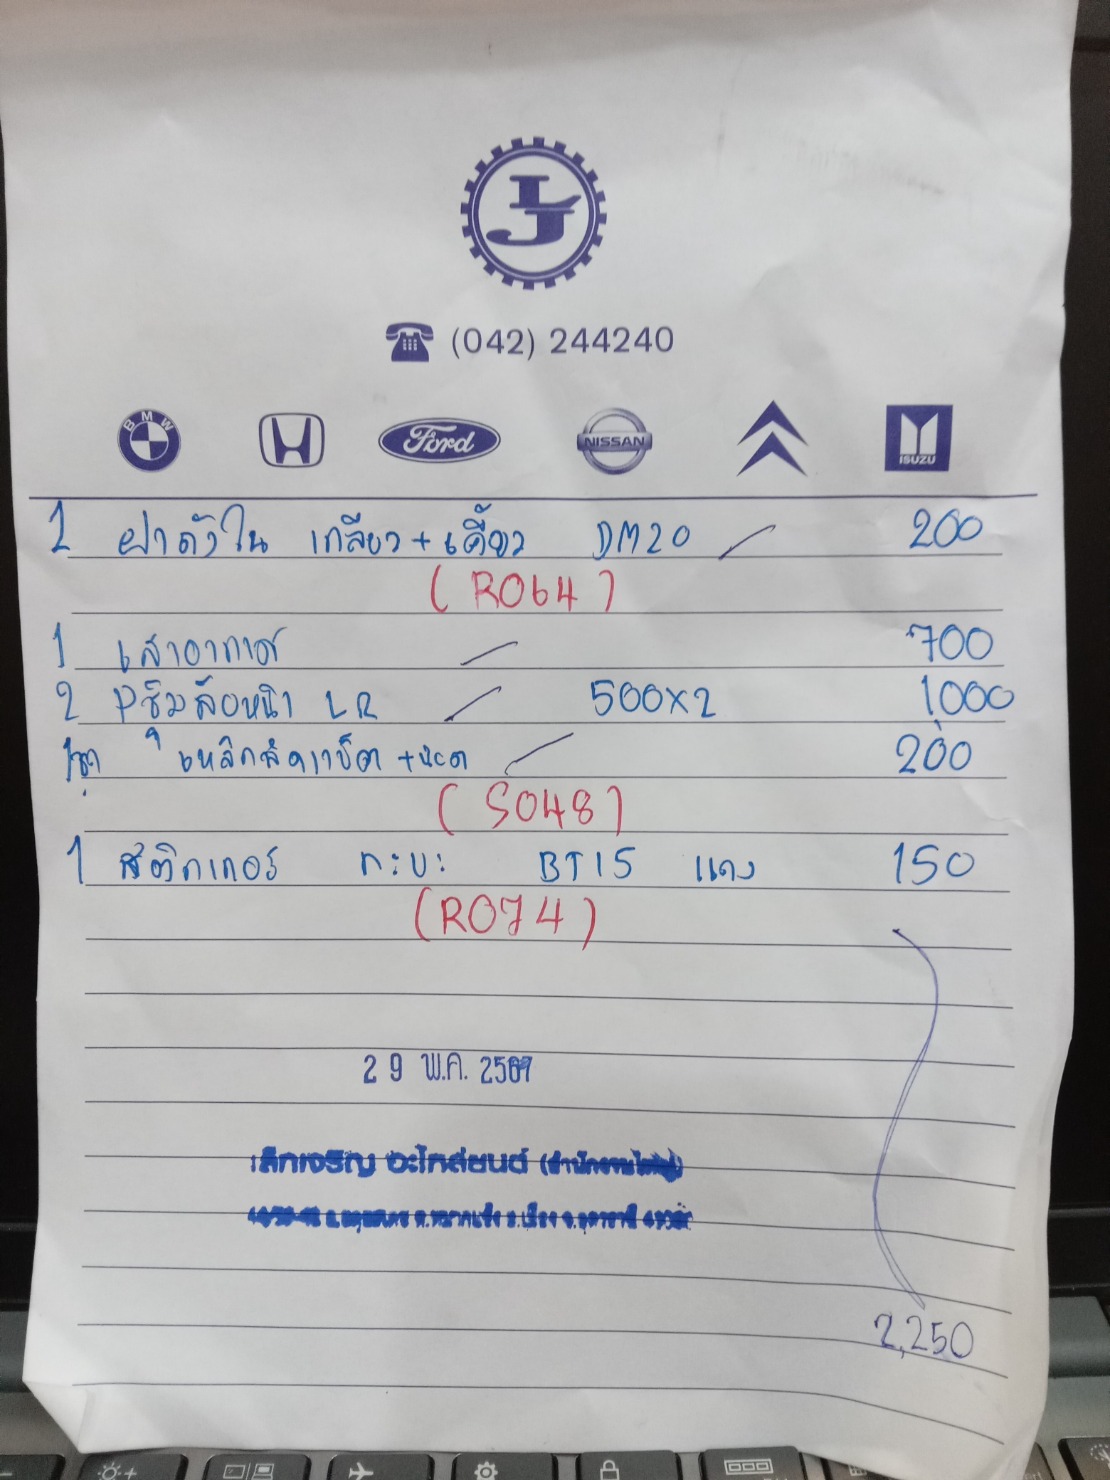 LJ
(042) 244240
BMW Ford NISSAN ISUZU
1 ฝาถังใน เกลียว+เคี้ยว DM20 200
(R064)
1 เสาอากาศ 700
2 ซุ้มล้อหน้า LR 500x2 1,000
1ชุด เหล็กรัดแบ็ต+น๊อต 200
(S048)
1 สติกเกอร์ กะบะ BT15 แดง 150
(R074)
29 พ.ค. 2567
เลิกเจริญ อะไหล่ยนต์ (สำนักงานใหญ่)
ต.หมากแข้ง อ.เมือง จ.อุดรธานี
2,250